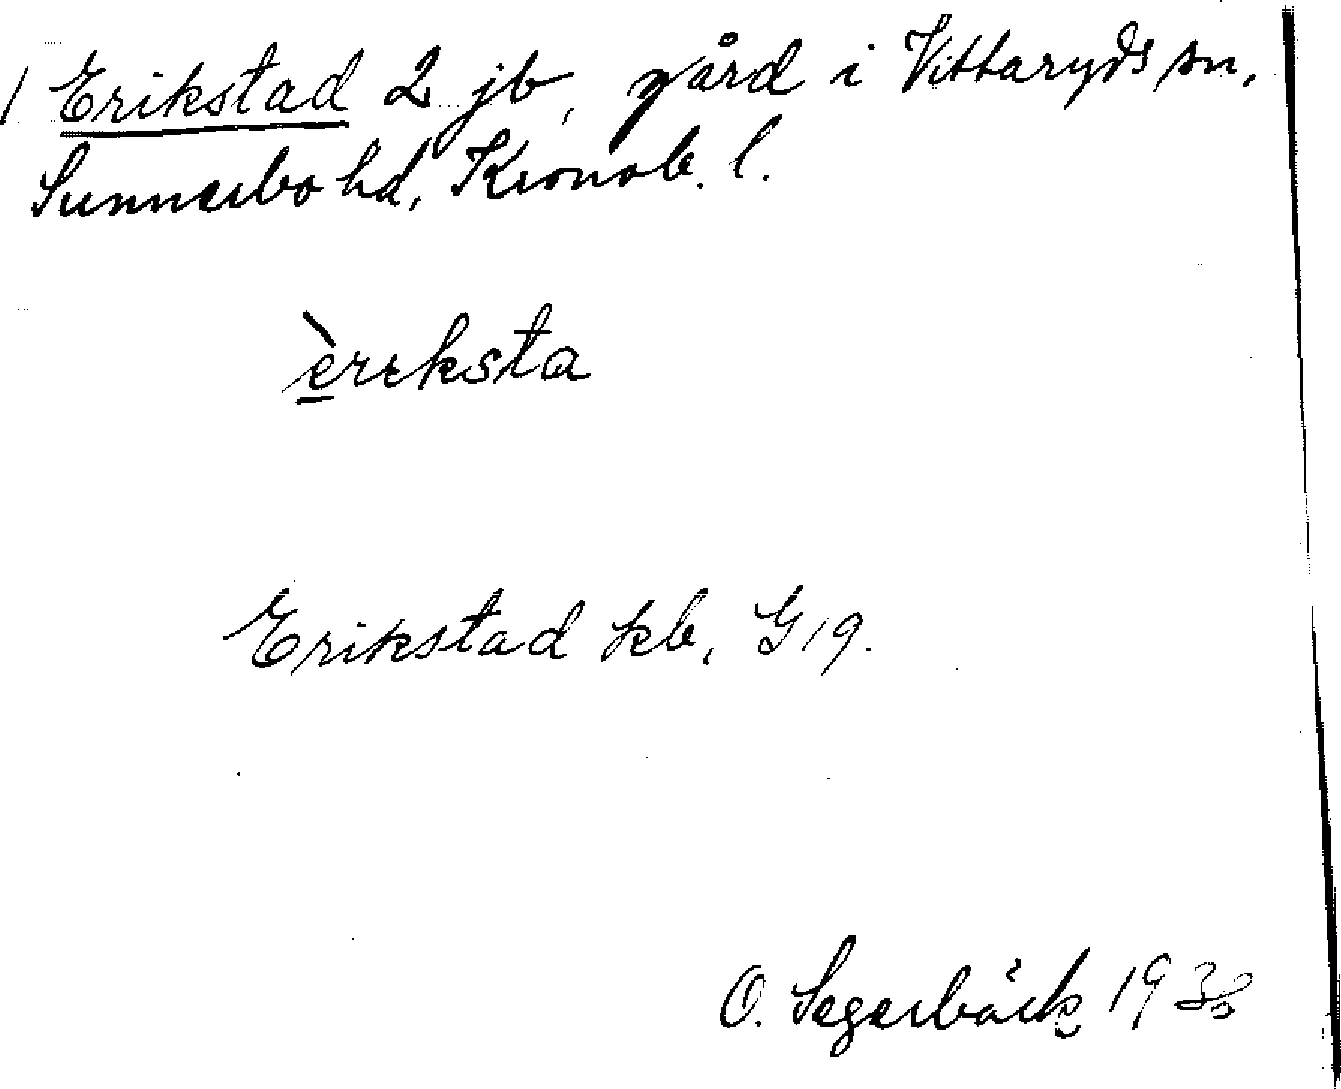 Erikstad 2 jb, gård i Vittaryds sn,
Sunnerbo hd, Kronob. l.
èreksta
Erikstad kb, G 19.
O. Segerbäck 1938